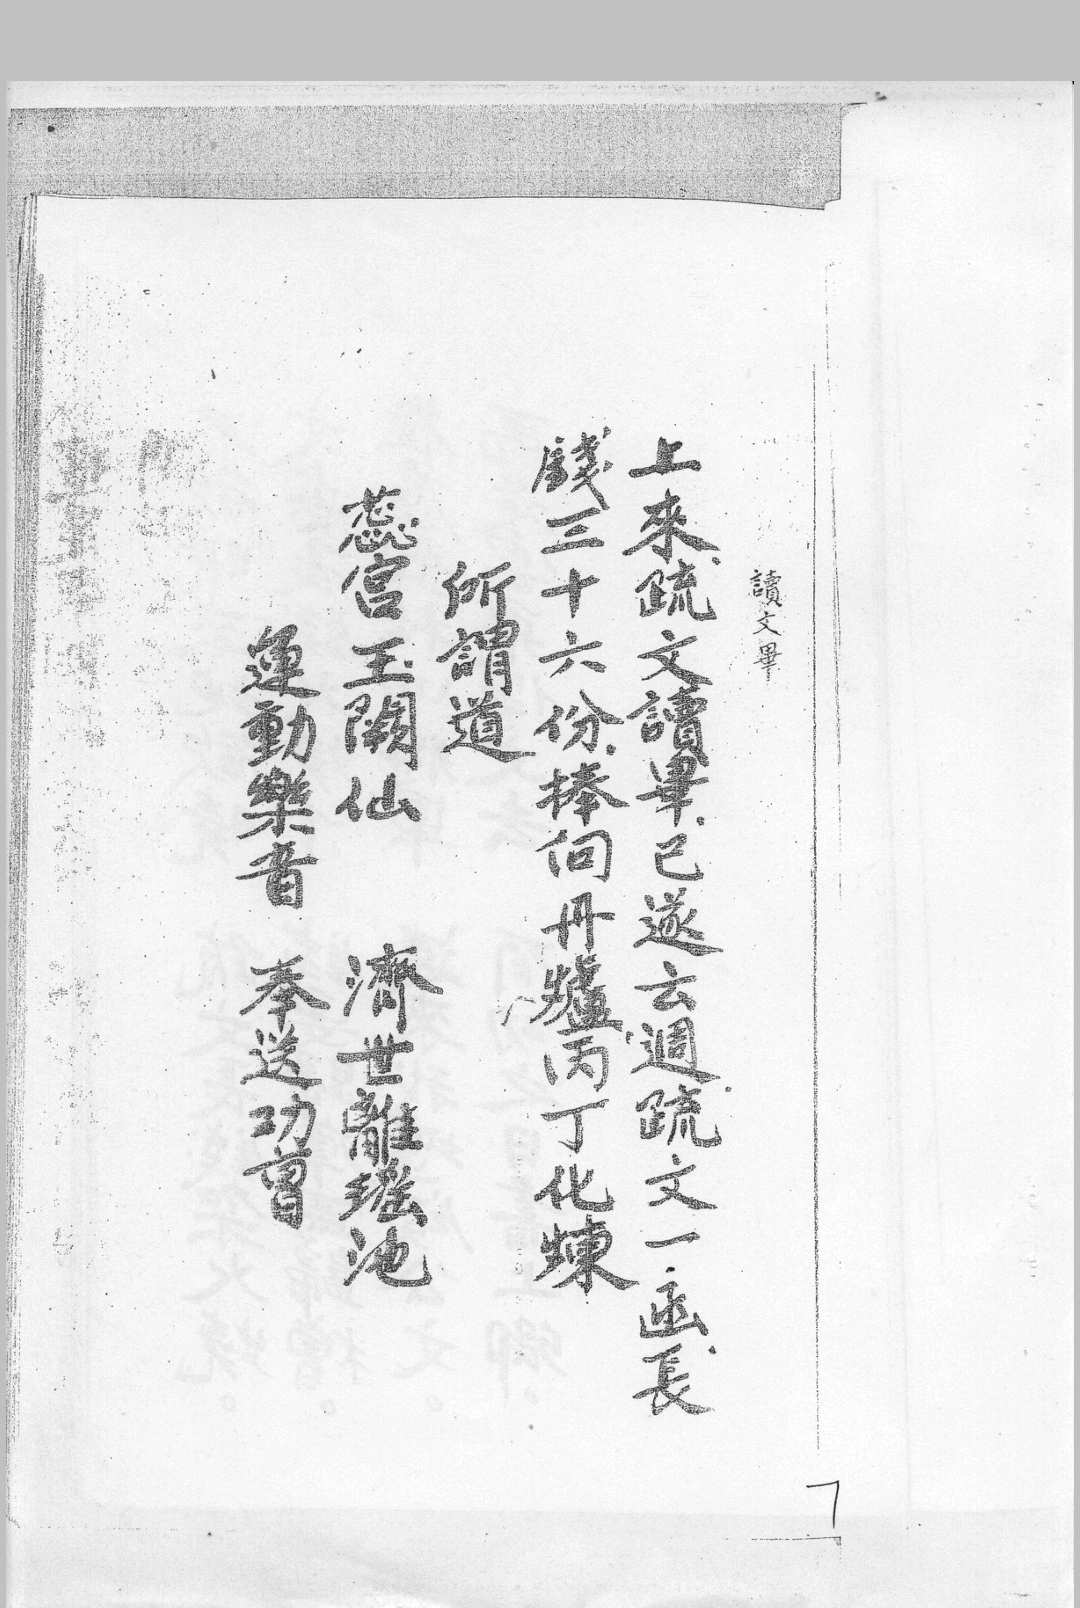 讀文畢
上來疏文讀畢已遂云週疏文一函長
錢三十六份捧向丹爐丙丁化煉
所謂道
蕊宮玉闕仙　濟世離瑤池
運動樂音　奉送功曹
7